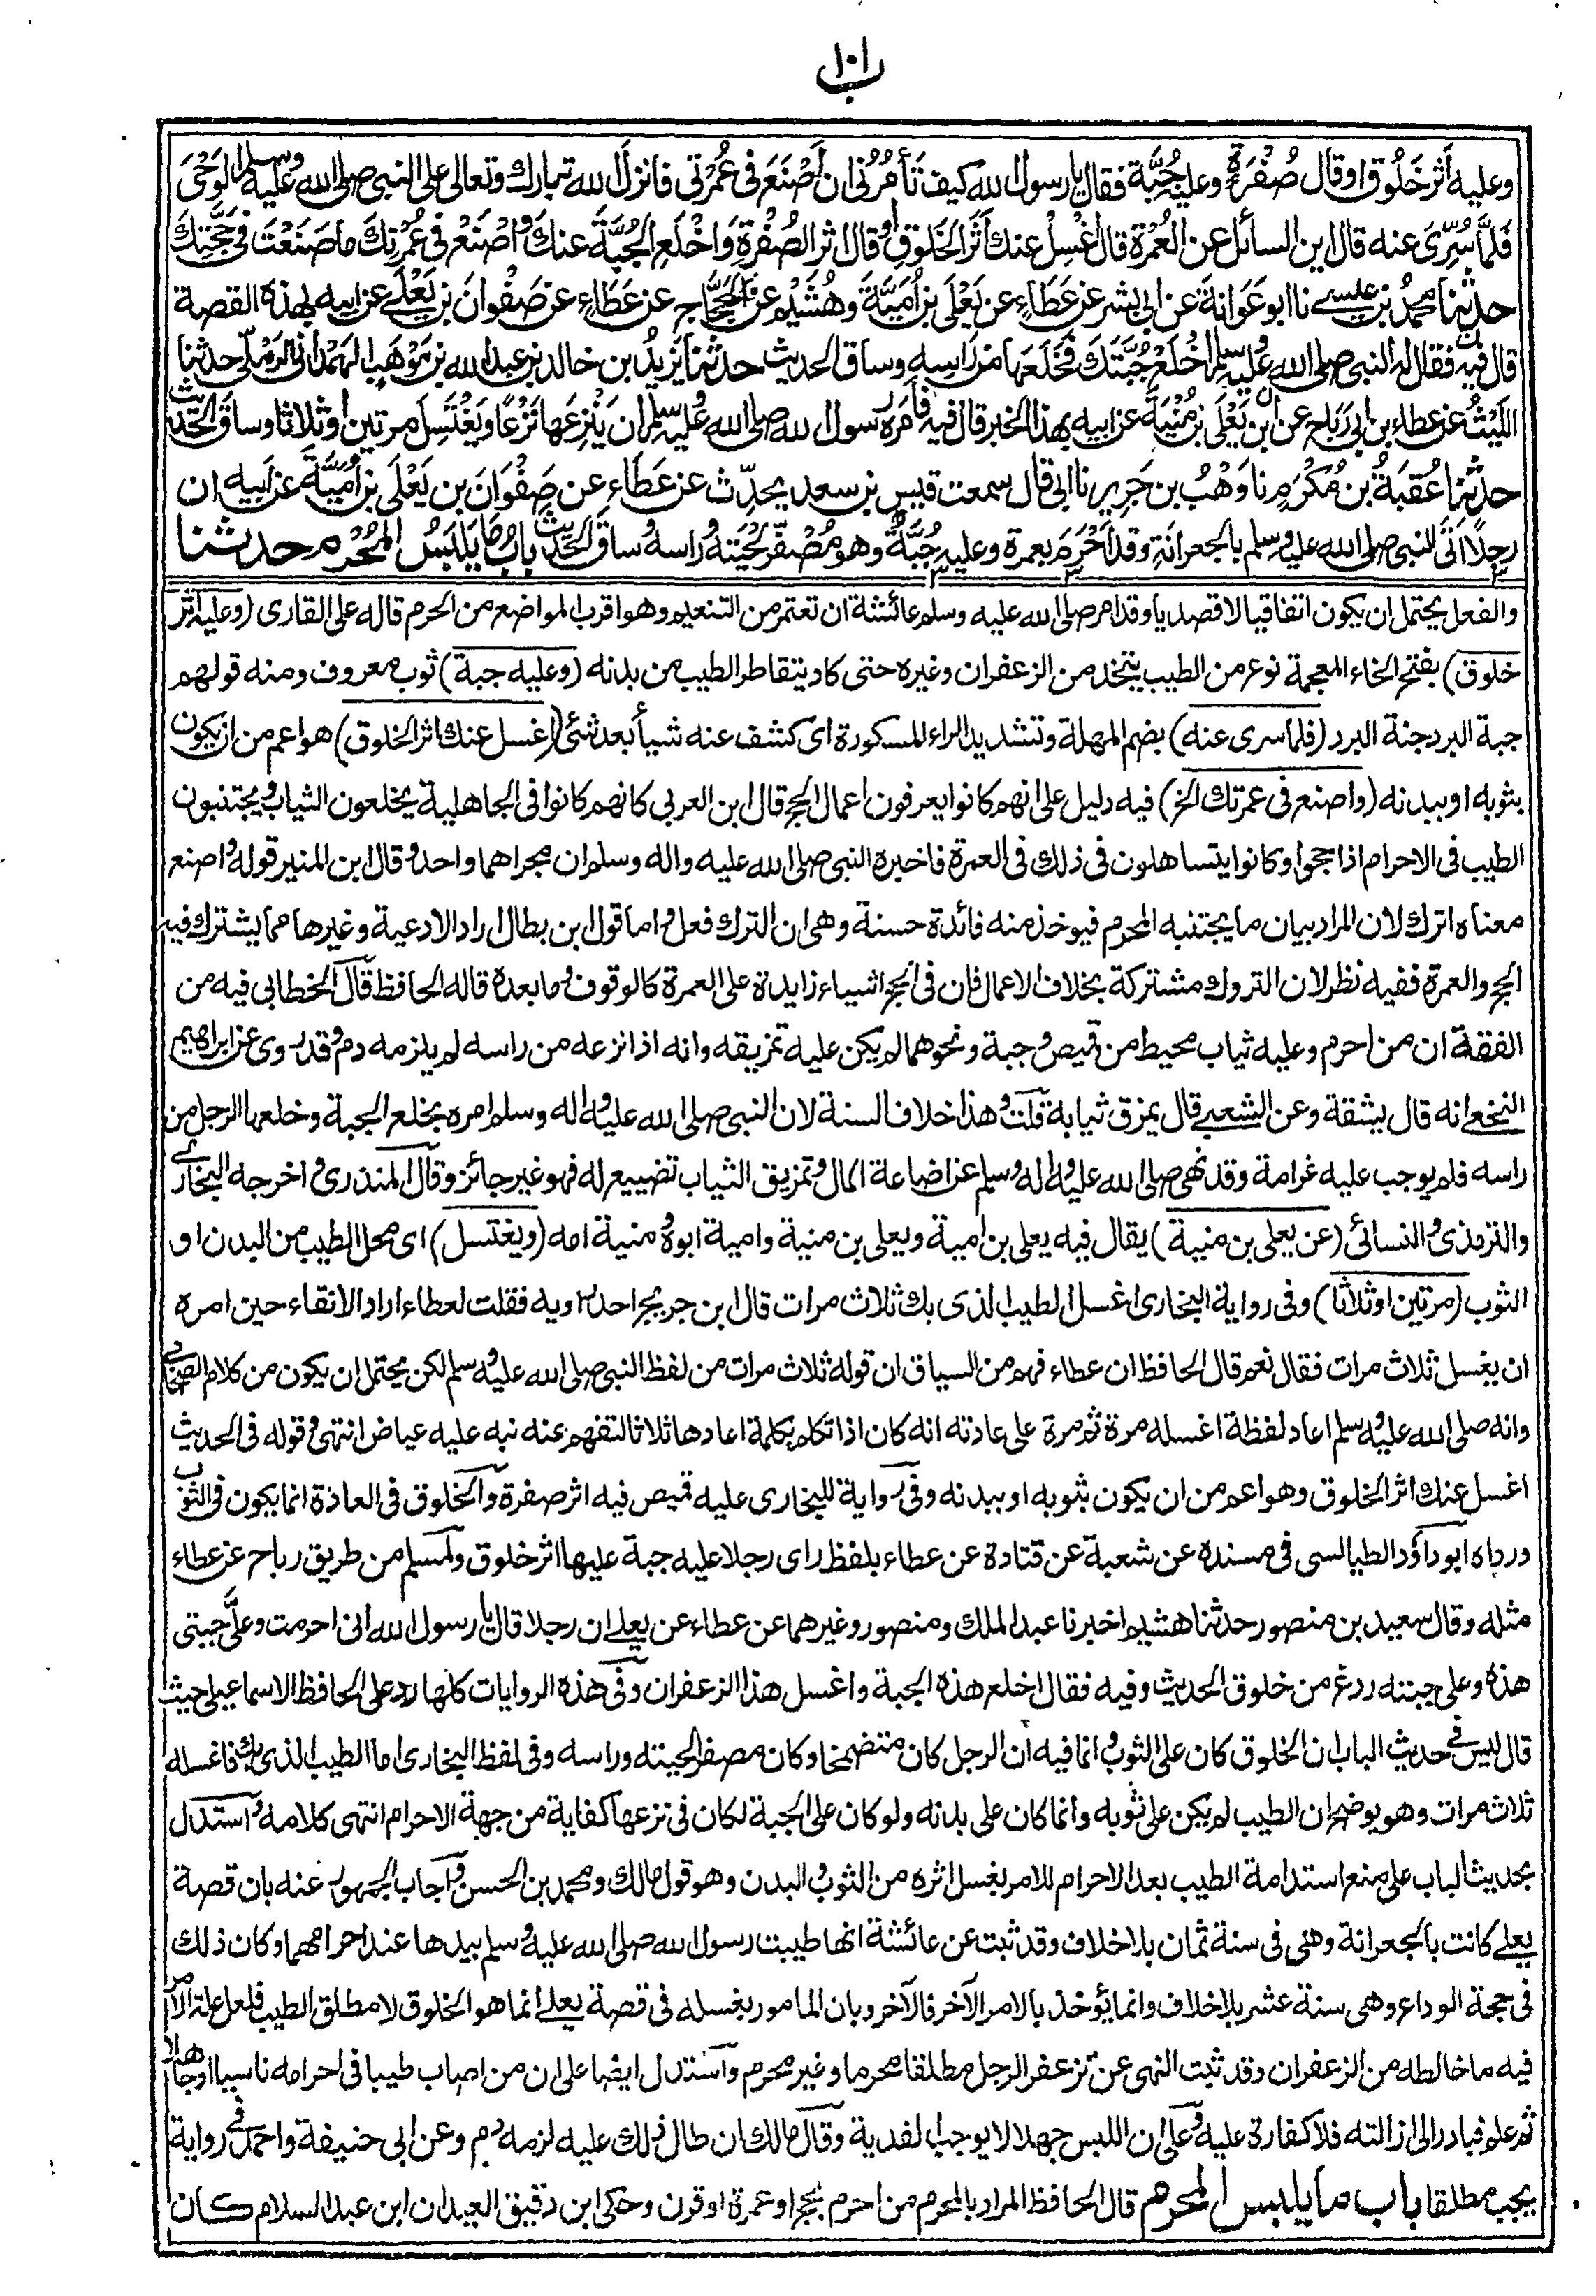 ١٠١
ب
وعليه أثر خَلُوق اوقال صُفْرَةٍ وعليه جُبَّة فقال يا رسول الله كيف تَأْمُرُنى ان أَصْنَعَ فى عُمْرَتى فانزل الله تبارك وتعالى على النبى صلى الله عليه وسلم الوَحْىَ
فَلَمَّا سُرِّىَ عنه قال اين السائل عن العُمْرة قال اغْسِلْ عنك أَثَرَ الخَلوقِ أو قال اثر الصُفْرةِ وَاخْلَعِ الجُبَّةَ عنك وَاصْنَعْ فى عُمْرتِكَ ما صَنَعْتَ فى حَجَّتِكَ
حدثنا محمدُ بن عيسى نا ابو عَوانةَ عن ابى بشر عن عَطَاءٍ عن يَعْلَى بن أُمَيَّةَ وهُشَيْم عن الحَجَّاج عن عَطَاءٍ عن صَفْوانَ بن يَعْلَى عن ابيه بهذه القصة
قال فيه فقال له النبى صلى الله عليه وسلم اخْلَعْ جُبَّتَكَ فَخَلَعَها من رَاسِه وساق الحديث حدثنا يَزيدُ بن خالد بن عبد الله بن مَوْهَب الهَمْدانى الرَّمْلىّ حدثنا
اللَيْثُ عن عطاء بن ابى رَبَاح عن ابن يَعْلَى بن مُنْيَةَ عن ابيه بهذا الخبر قال فيه فأَمَره رسول الله صلى الله عليه وسلم ان يَنْزِعَها نَزْعًا ويَغْتَسِلَ مرتين او ثلاثا وساق الحديث
حدثنا عُقبَةُ بن مُكْرَمٍ نا وَهْبُ بن جَرِيرٍ نا ابى قال سمعت قيس بن سعد يحدِّث عن عَطَاء عن صَفْوَانَ بن يَعْلَى بن أُمَيَّةَ عن أبيه ان
رجلًا اَتَى النبى صلى الله عليه وسلم بالجعرانَةِ وقد أَحْرَمَ بعمرة وعليه جُبَّةٌ وهو مُصَفِّرٌ لِحْيَتَه ورأسه وساق الحديث بابُ ما يَلْبَسُ المُحْرِم حدثنا
والفعل يحتمل ان يكون اتفاقيا لا قصديا وقد امر صلى الله عليه وسلم عائشة ان تعتمر من التنعيم وهو اقرب المواضع من الحرم قاله على القارى (وعليه اثر
خلوق) بفتح الخاء المعجمة نوع من الطيب يتخذ من الزعفران وغيره حتى كاد يتقاطر الطيب من بدنه (وعليه جبة) ثوب معروف ومنه قولهم
جبة البرد جنة البرد (فلما سرى عنه) بضم المهملة وتشديد الراء المكسورة اى كشف عنه شيأ بعد شئ (اغسل عنك اثر الخلوق) هو اعم من ان يكون
بثوبه او ببدنه (واصنع فى عمرتك الخ) فيه دليل على انهم كانوا يعرفون اعمال الحج قال ابن العربى كانهم كانوا فى الجاهلية يخلعون الثياب ويجتنبون
الطيب فى الاحرام اذا حجوا وكانوا يتساهلون فى ذلك فى العمرة فاخبره النبى صلى الله عليه واله وسلم ان مجراهما واحد وقال ابن المنير قوله واصنع
معناه اترك لان المراد بيان ما يجتنبه المحرم فيوخذ منه فائدة حسنة وهى ان الترك فعل واما قول ابن بطال اراد الادعية وغيرها مما يشترك فيه
الحج والعمرة ففيه نظر لان التروك مشتركة بخلاف الاعمال فان فى الحج اشياء زايدة على العمرة كالوقوف وما بعده قاله الحافظ قال الخطابى فيه من
الفقة ان من احرم وعليه ثياب محيط من قميص وجبة ونحوهما لم يكن عليه تمزيقه وانه اذا نزعه من راسه لم يلزمه دم وقد روى عن ابراهيم
النخعى انه قال يشقة وعن الشعبى قال يمزق ثيابة قلت وهذا خلاف السنة لان النبى صلى الله عليه واله وسلم امره بخلع الجبة وخلعها الرجل من
راسه فلم يوجب عليه غرامة وقد نهى صلى الله عليه واله وسلم عن اضاعة المال وتمزيق الثياب تضييع له فهو غير جائز وقال المنذرى واخرجه البخارى
والترمذى والنسائى (عن يعلى بن منية) يقال فيه يعلى بن امية ويعلى بن منية وامية ابوه ومنية امه (ويغتسل) اى محل الطيب من البدن او
الثوب (مرتين او ثلاثا) وفى رواية البخارى اغسل الطيب الذى بك ثلاث مرات قال ابن جريج احد رويه فقلت لعطاء اراد الانقاء حين امره
ان يغسل ثلاث مرات فقال نعم قال الحافظ ان عطاء فهم من السياق ان قوله ثلاث مرات من لفظ النبى صلى الله عليه وسلم لكن يحتمل ان يكون من كلام الصحابى
وانه صلى الله عليه وسلم اعاد لفظة اغسله مرة ثم مرة على عادته انه كان اذا تكلم بكلمة اعادها ثلاثا لتفهم عنه نبه عليه عياض انتهى وقوله فى الحديث
اغسل عنك اثر الخلوق وهو اعم من ان يكون بثوبه او ببدنه وفى رواية للبخارى عليه قميص فيه اثر صفرة والخلوق فى العادة انما يكون فى الثوب
ورواه ابو داؤد الطيالسى فى مسنده عن شعبة عن قتادة عن عطاء بلفظ راى رجلا عليه جبة عليها اثر خلوق ولمسلم من طريق رباح عن عطاء
مثله وقال سعيد بن منصور حدثنا هشيم اخبرنا عبد الملك ومنصور وغيرهما عن عطاء عن يعلى ان رجلا قال يا رسول الله انى احرمت وعلىَّ جبتى
هذه وعلى جبته ردغ من خلوق الحديث وفيه فقال اخلع هذه الجبة واغسل هذا الزعفران وفى هذه الروايات كلها رد على الحافظ الاسماعيلى حيث
قال ليس فى حديث الباب ان الخلوق كان على الثوب وانما فيه ان الرجل كان متضمخا وكان مصفر الحيته وراسه وفى لفظ البخارى اما الطيب الذى بك فاغسله
ثلاث مرات وهو يوضح ان الطيب لم يكن على ثوبه وانما كان على بدنه ولو كان على الجبة لكان فى نزعها كفاية من جهة الاحرام انتهى كلامه واستدل
بحديث الباب على منع استدامة الطيب بعد الاحرام للامر بغسل اثره من الثوب والبدن وهو قول مالك ومحمد بن الحسن واجاب الجمهور عنه بان قصة
يعلى كانت بالجعرانة وهى فى سنة ثمان بلا خلاف وقد ثبت عن عائشة انها طيبت رسول الله صلى الله عليه وسلم بيدها عند احرامهما وكان ذلك
فى حجة الوداع وهى سنة عشر بلا خلاف وانما يؤخذ بالامر الآخر فالآخر وبان المامور بغسله فى قصة يعلى انما هو الخلوق لا مطلق الطيب فلعل علة الامر
فيه ما خالطه من الزعفران وقد ثبت النهى عن تزعفر الرجل مطلقا محرما وغير محرم واستدل ايضا على ان من اصاب طيبا فى احرامه ناسيا او جاهلا
ثم علم فبادر الى ازالته فلا كفارة عليه وعلى ان اللبس جهلا لا يوجب الفدية وقال مالك ان طال ذلك عليه لزمه دم وعن ابى حنيفة واحمد فى رواية
يجب مطلقا باب ما يلبس المحرم قال الحافظ المراد بالمحرم من احرم بحج او عمرة او قرن وحكى ابن دقيق العيد ان ابن عبد السلام كان